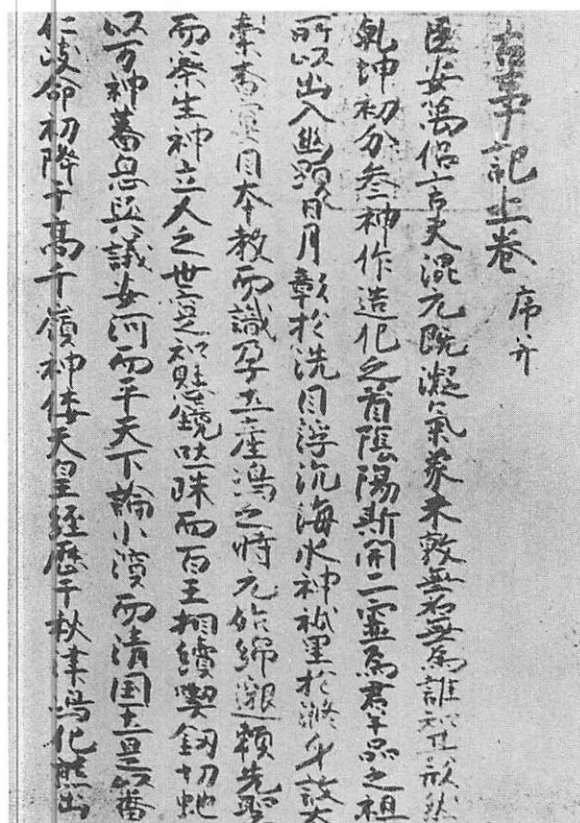 古事記上卷 序并
臣安萬侶言夫混元既凝氣象未敦無名無為誰知其形然
乾坤初分叅神作造化之首陰陽斯開二霊為群品之祖
所以出入幽顕日月彰於洗目浮沉海水神祇呈於滌身故太
素杳冥因本教而識孕土産嶋之時元始綿邈頼先聖
而察生神立人之世寔知懸鏡吐珠而百王相續喫釼切蛇
以万神蕃息與議安河而平天下論小濱而清国土是以番
仁岐命初降于高千嶺神倭天皇経歴于秋津嶋化熊出